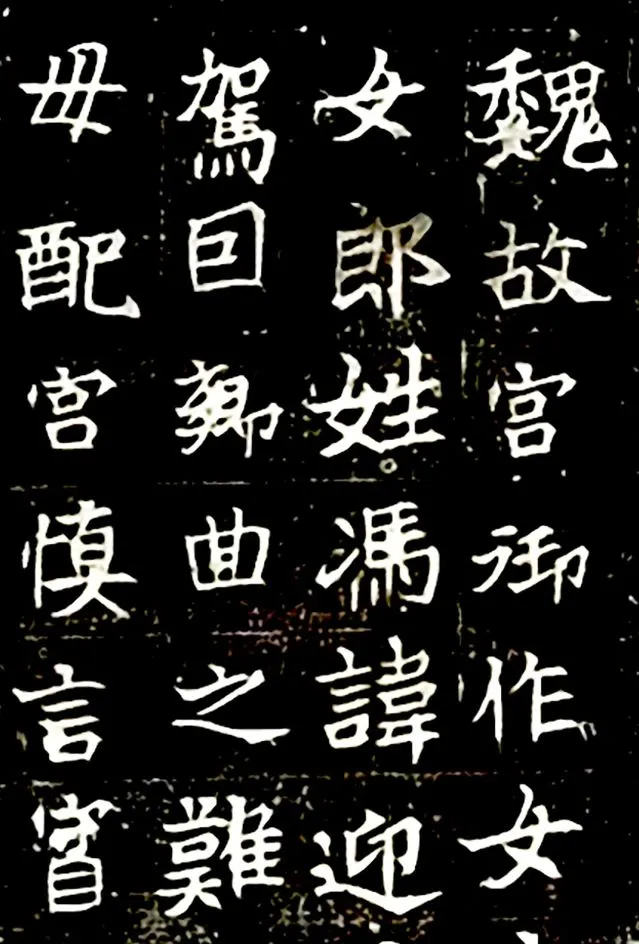 魏故宮御作女
女郎姓馮諱迎
駕囙鄉曲之難
毋配宮慎言